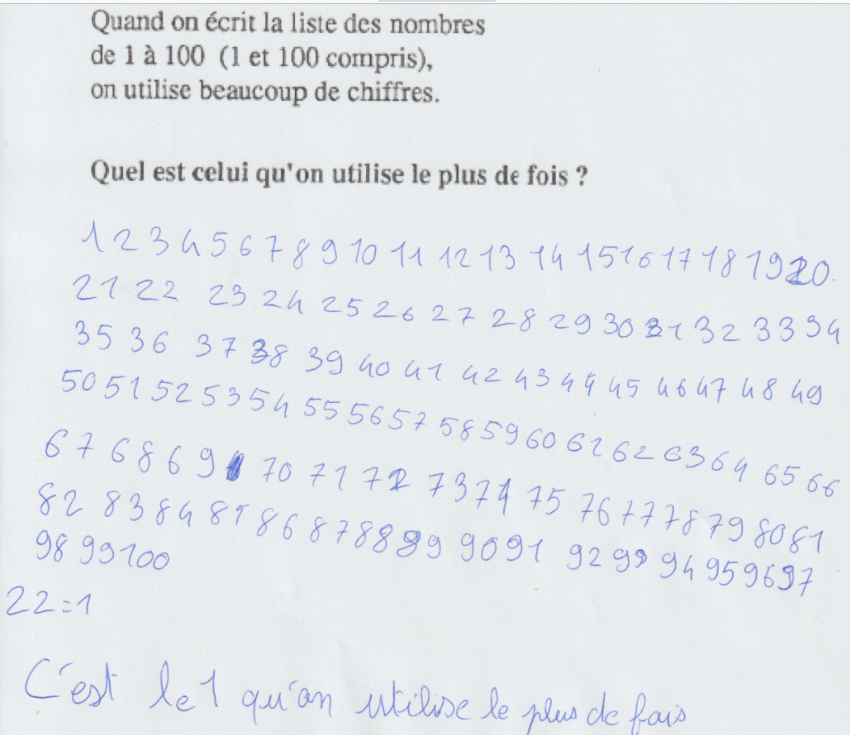 Quand on écrit la liste des nombres
de 1 à 100 (1 et 100 compris),
on utilise beaucoup de chiffres.
Quel est celui qu'on utilise le plus de fois ?
1 2 3 4 5 6 7 8 9 10 11 12 13 14 15 16 17 18 19 20.
21 22 23 24 25 26 27 28 29 30 31 32 33 34
35 36 37 38 39 40 41 42 43 44 45 46 47 48 49
50 51 52 53 54 55 56 57 58 59 60 61 62 63 64 65 66
67 68 69 70 71 72 73 74 75 76 77 78 79 80 81
82 83 84 85 86 87 88 89 90 91 92 93 94 95 96 97
98 99 100
22=1
C'est le 1 qu'on utilise le plus de fois